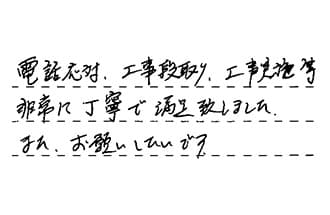 電話応対、工事段取り、工事実施等
非常に丁寧で満足致しました。
また、お願いしたいです